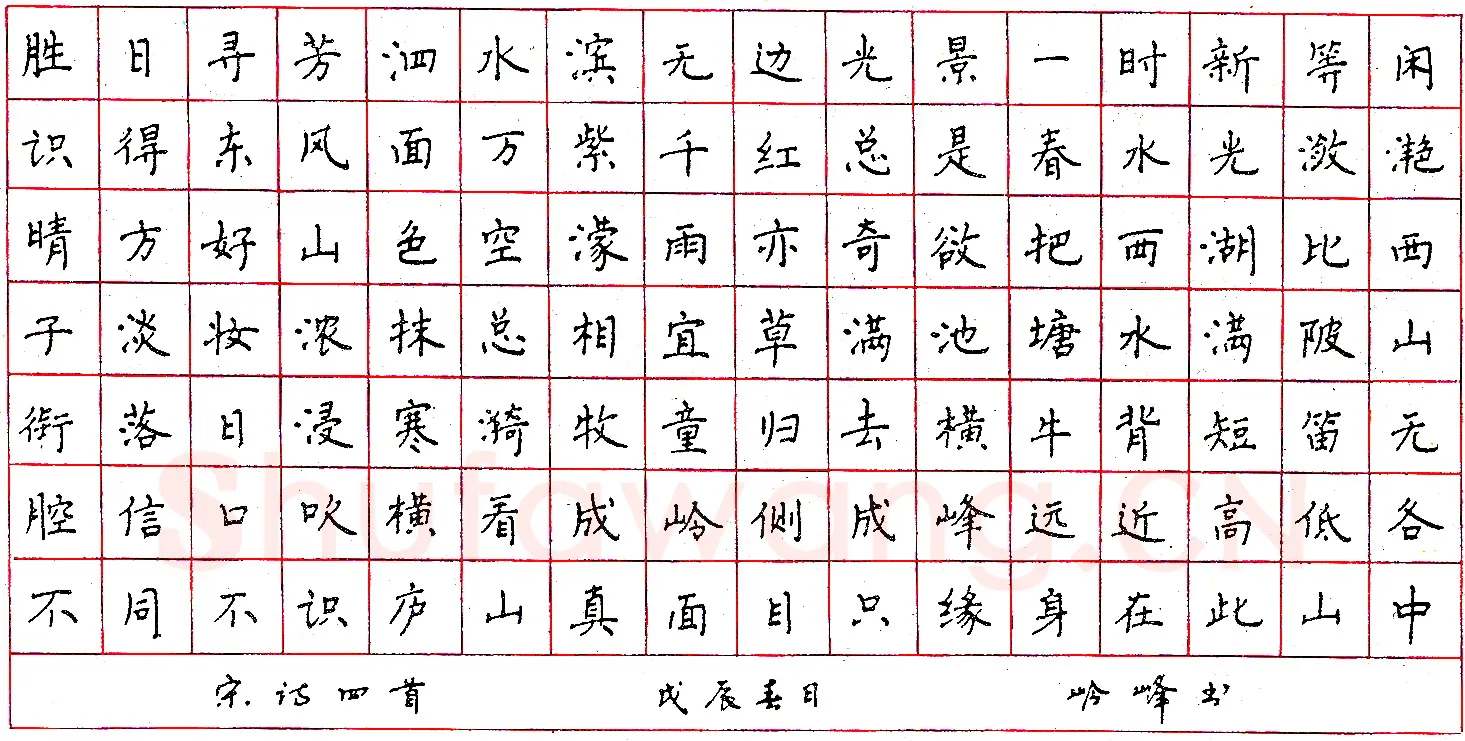 胜日寻芳泗水滨无边光景一时新等闲
识得东风面万紫千红总是春水光潋滟
晴方好山色空濛雨亦奇欲把西湖比西
子淡妆浓抹总相宜草满池塘水满陂山
衔落日浸寒漪牧童归去横牛背短笛无
腔信口吹横看成岭侧成峰远近高低各
不同不识庐山真面目只缘身在此山中
宋诗四首 戊辰春日 岭峰书
Shufawang.CN